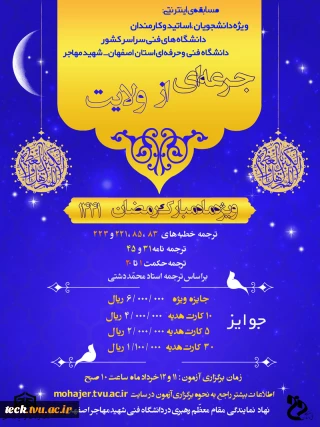 مسابقه‌ی اینترنتی:
ویژه دانشجویان، اساتید و کارمندان
دانشگاه های فنی سراسر کشور
دانشگاه فنی و حرفه‌ای استان اصفهان - شهید مهاجر
جرعه‌ای از ولایت
ویژه ماه مبارک رمضان ۱۴۴۱
ترجمه خطبه‌های ۸۳، ۸۵، ۲۲۱ و ۲۲۳
ترجمه نامه ۳۱ و ۴۵
ترجمه حکمت ۱ تا ۲۰
براساس ترجمه استاد محمد دشتی
جوایز
جایزه ویژه ۶/۰۰۰/۰۰۰ ریال
۱۰ کارت هدیه ۴/۰۰۰/۰۰۰ ریال
۵ کارت هدیه ۲/۰۰۰/۰۰۰ ریال
۳۰ کارت هدیه ۱/۱۰۰/۰۰۰ ریال
زمان برگزاری آزمون: ۱۱ و ۱۲ خرداد ماه ساعت ۱۰ صبح
اطلاعات بیشتر راجع به نحوه برگزاری آزمون در سایت mohajer.tvu.ac.ir
نهاد نمایندگی مقام معظم رهبری در دانشگاه فنی شهید مهاجر
teck.tvu.ac.ir